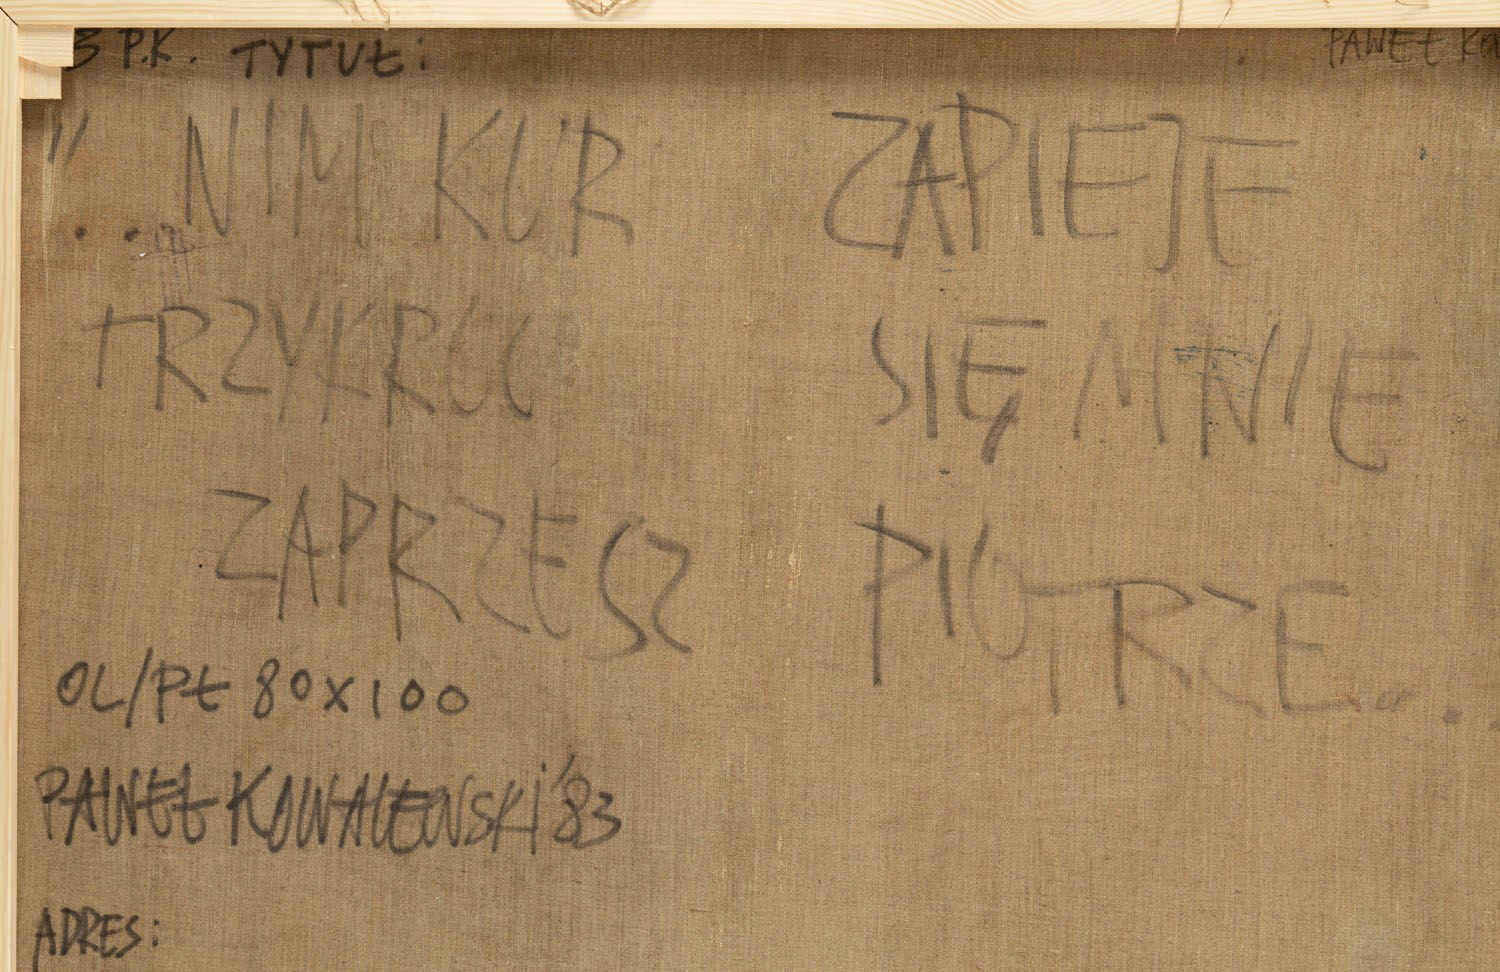 3 P.K. TYTUŁ: PAWEŁ KOW
"...NIM KUR ZAPIEJE
TRZYKROĆ SIĘ MNIE
ZAPRZESZ PIOTRZE...
OL/PŁ 80x100
PAWEŁ KOWALEWSKI '83
ADRES: